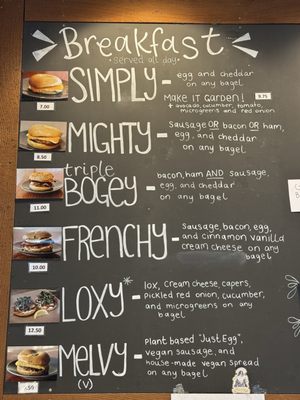 Breakfast
served all day
SIMPLY - egg and cheddar
on any bagel
7.00
Make it Garden! 8.75
+ avocado, cucumber, tomato,
microgreens and red onion.
MIGHTY - sausage OR bacon OR ham,
egg, and cheddar
on any bagel.
8.50
triple
BOGEY - bacon, ham AND sausage,
egg, and cheddar
on any bagel
11.00
FRENCHY - sausage, bacon, egg,
and cinnamon vanilla
cream cheese on any
bagel
10.00
LOXY* - lox, cream cheese, capers,
pickled red onion, cucumber,
and microgreens on any
bagel
12.50
MELVY - Plant based "Just Egg",
(V)
vegan sausage, and
house-made vegan spread
on any bagel
.50